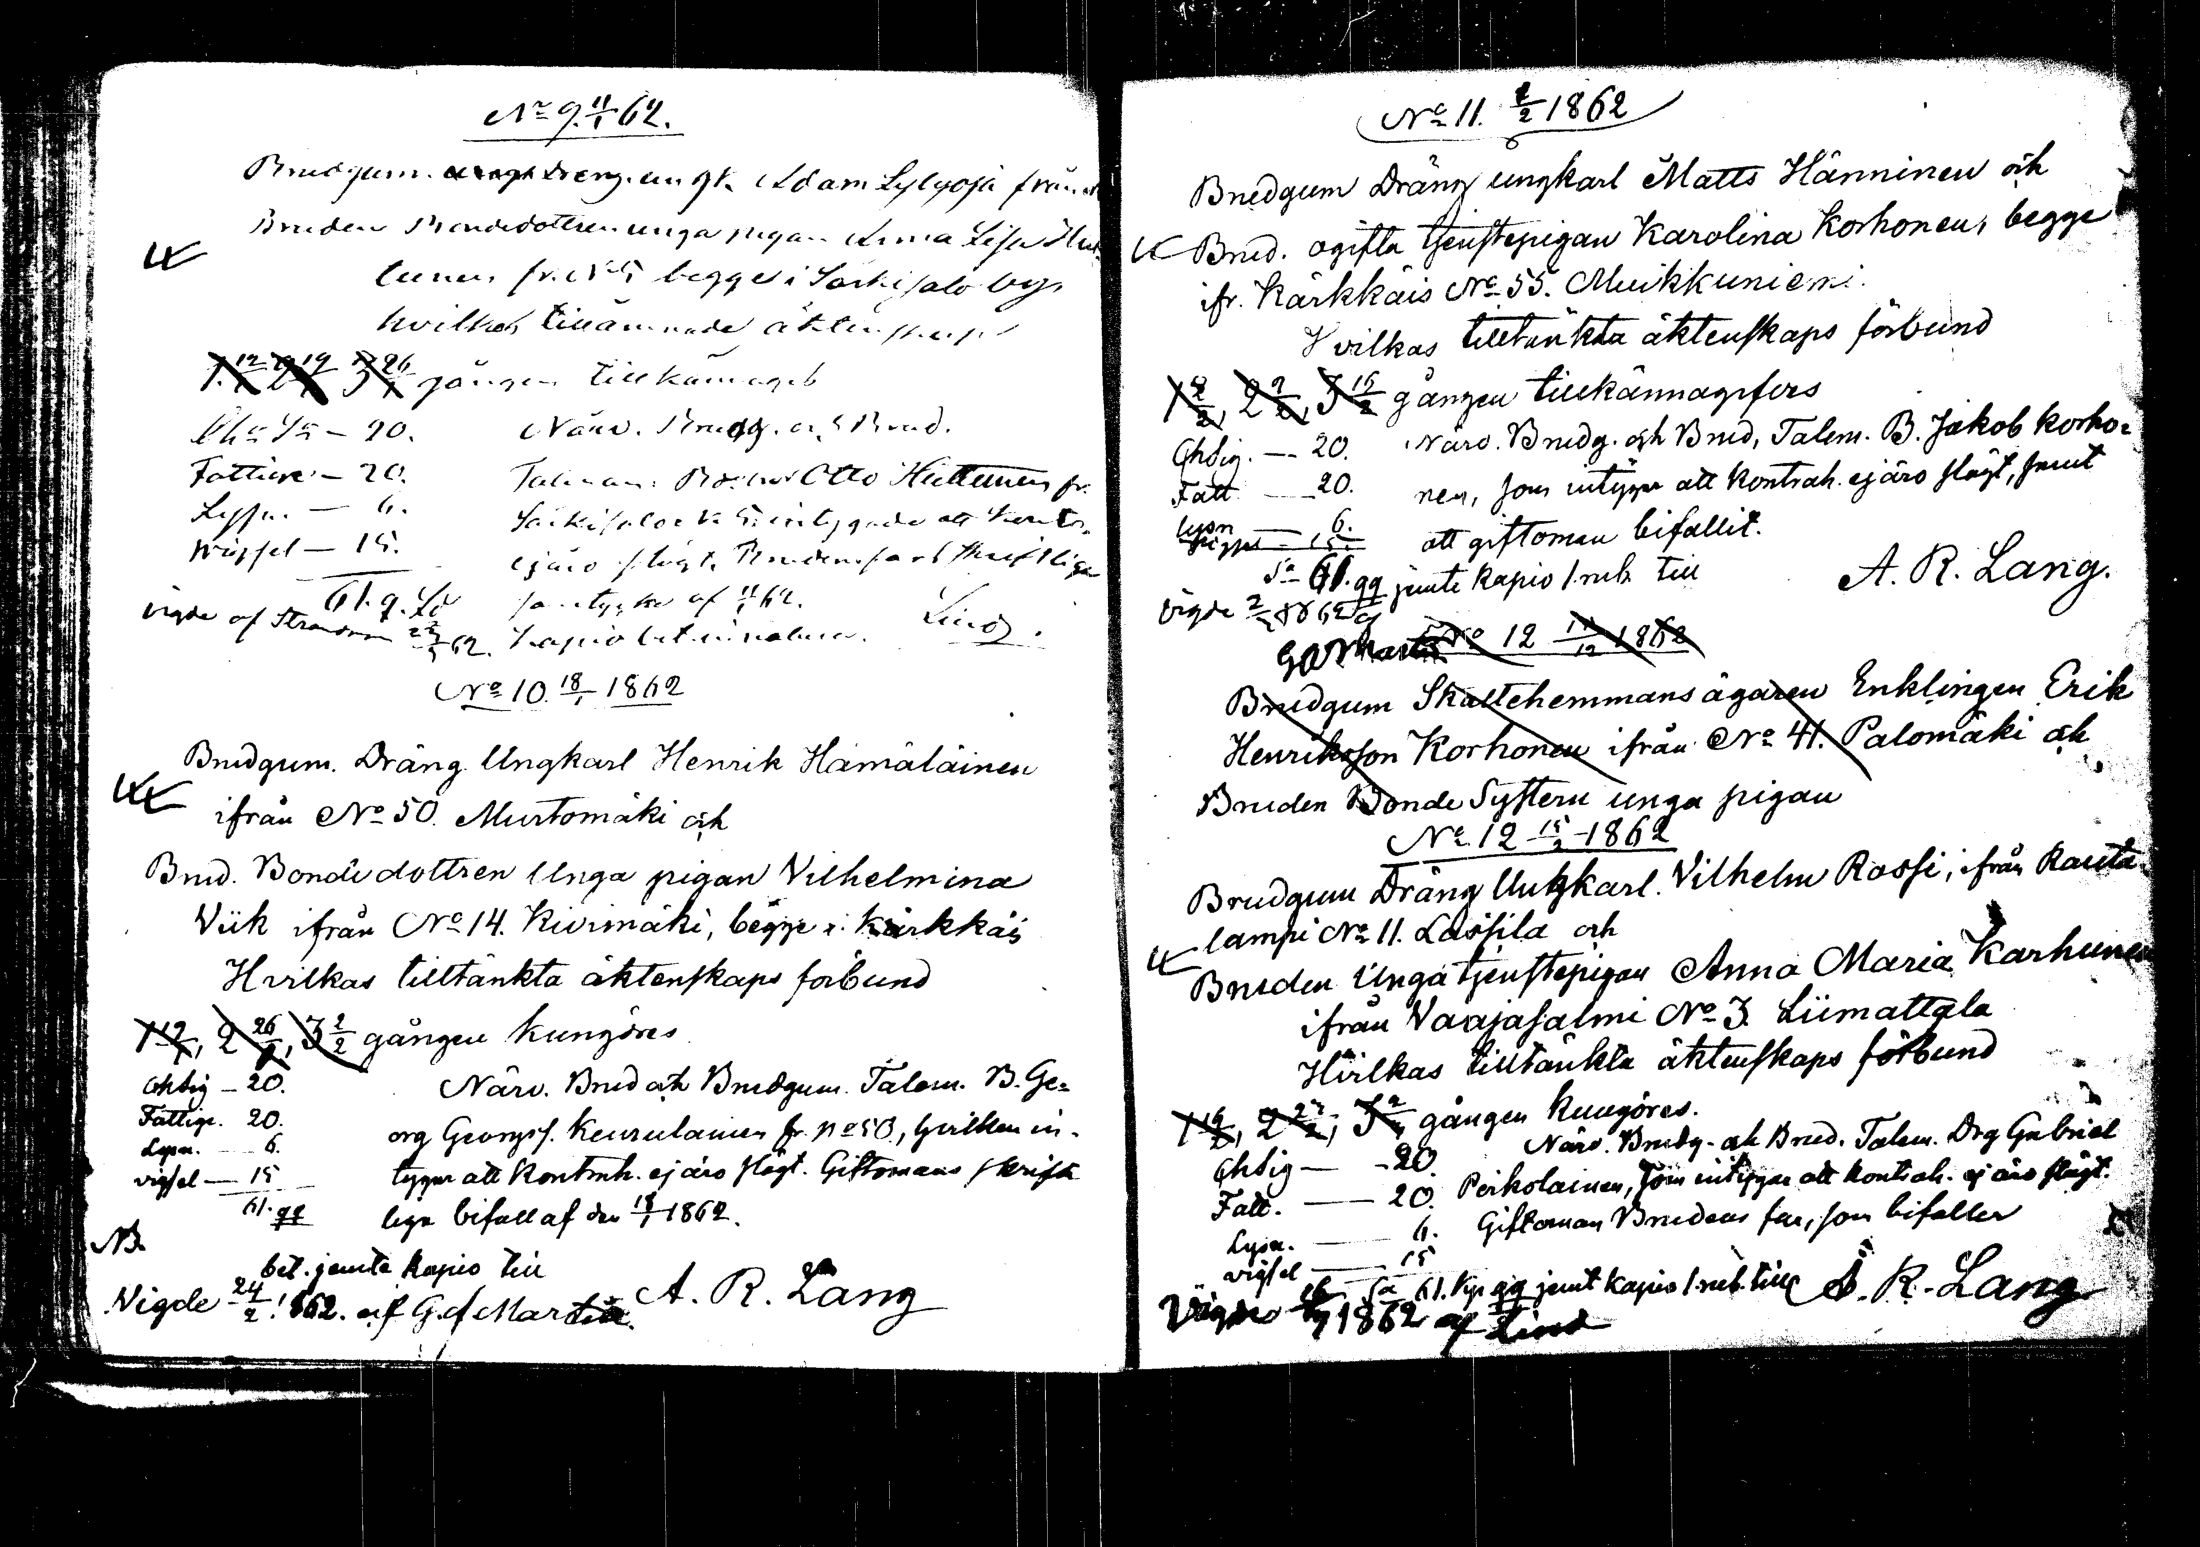 No 9. 11/1 62.
Brudgum. dreng. ungk. Adam Lylyoja från
Bruden Bondedottren unga pigan Anna Lisa Hut-
tunen fr. No 5 begge i Särkisalo by,
hvilkas tillämnade äktenskaps
1. 12/1 2 19/1 3 26/1 gången tillkännageb
– 20. Närv. Brudg. och Brud.
Fattige – 20. Talman: Bd: Otto Huttunen fr.
Lysn. – 6. Särkisalo No 5. intygade att kontr.
Wigsel – 15. ejäro slägt. Brudens far skriftliga
61. q. Ld samtycke af 11/1 62.
Vigde af 62. Kapio bet. Lind.
No 10. 18/1 1862
Brudgum. Dräng Ungkarl Henrik Hämäläinen
ifrån No 50. Murtomäki och
Brud. Bondedottren Unga pigan Vilhelmina
Viik ifrån No 14. Kivimäki, begge i Kärkkäis
Hvilkas tilltänkta äktenskaps förbund
1 19/1, 2 26/1, 3 2/2 gången kungöres
Ohdig – 20. Närv. Brud och Brudgum. Talem. B. Ge-
Fattige. 20. org Georgs. Keurulainen fr. No 50, hvilken in-
Lysn. – 6. tygar att Kontrah. ej äro slägt. Giftomans skrift
vigsel – 15 liga bifall af den 18/1 1862.
61. qq
NB.
bet. jemte kapio till
Vigde 24/2 1862. af G. A. Martin. A. R. Lang
No 11. 1/2 1862
Brudgum Dräng ungkarl Matts Hänninen och
Brud. ogifta tjenstepigan Karolina Korhonen, begge
ifr. Kärkkäis No 55. Muikkuniemi.
Hvilkas tilltänkta äktenskaps förbund
1 2/2, 2 9/2, 3 16/2 gången tillkännagifves
Ohdig. – 20. Närv. Brudg. och Brud, Talem. B. Jakob Korho-
Fatt – 20. nen, som intygar att Kontrah. ej äro slägt, samt
lysn – 6. att giftoman bifallit.
vigsel – 15.
Sa 61. qq jemte kapio 1. rub. till A. R. Lang.
Vigde 1862 af
No 12 1862
Brudgum Skattehemmans ägaren Enklingen Erik
Henriksson Korhonen ifrån No 41. Palomäki och
Bruden Bonde Systern unga pigan
No 12 15/2 1862
Brudgum Dräng Ungkarl. Vilhelm Rossi, ifrån Rauta-
lampi No 11. Lassila och
Bruden Unga tjenstepigan Anna Maria Karhunen
ifrån Vaajasalmi No 3. Liimattala
Hvilkas tilltänkta äktenskaps förbund
1 16/2, 2 23/2, 3 2/3 gången kungöres.
Ohdig – 20. Närv. Brudg. och Brud. Talem. Drg Gabriel
Fatt. – 20. Peikolainen, som intygar att kontrah. ej äro slägt.
Lysn. – 6. Giftoman Brudens far, som bifaller
vigsel – 15
Sa 61. kp. qq jemt kapio 1. rub. till A. R. Lang
Vigde 1862 af Lind